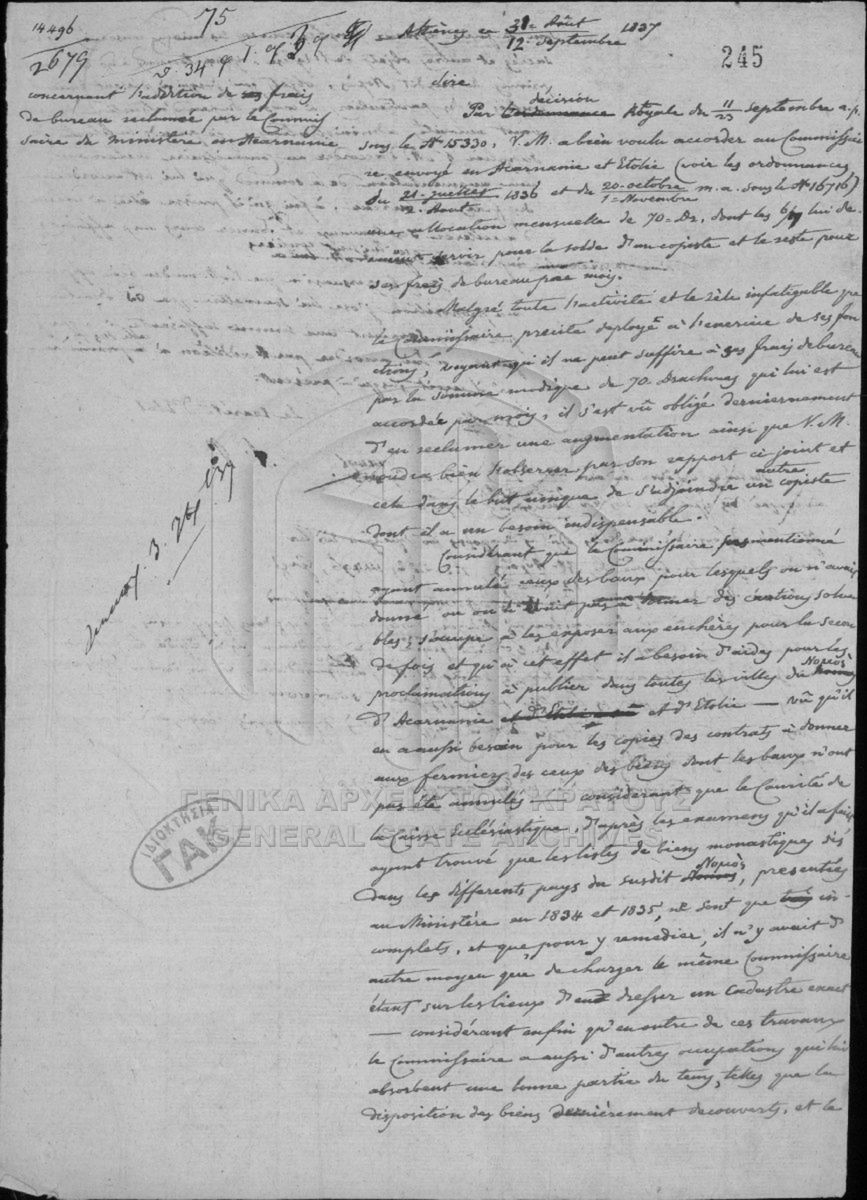 14496
2679
75
245
Athènes ce 31 Août / 12 Septembre 1837
concernant l'addition de frais
de bureau reclamée par le Commis
saire du ministère en Acarnanie
Sire
Par décision Royale du 11/23 Septembre a.p.
sous le No 15330, V.M. a bien voulu accorder au Commissai
re envoyé en Acarnanie et Etolie (voir les ordonnances
du 21 juillet / 2 Aout 1836 et du 20 octobre / 1 Novembre m.a. sous le No 16716)
une allocation mensuelle de 70 Dr, dont les 6/7 lui de
servir pour la solde d'un copiste et le reste pour
ses frais de bureau par mois.
Malgré toute l'activité et le zèle infatigable que
le Commissaire precité deploye à l'exercice de ses fon
ctions, voyant qu'il ne peut suffire à ses frais de bureau
par la somme modique de 70 Drachmes qui lui est
accordée par mois, il s'est vû obligé dernierement
d'en reclamer une augmentation ainsi que V.M.
voudra bien l'observer par son rapport ci joint et
cela dans le but unique de s'adjoindre un autre copiste
dont il a un besoin indispensable.
Considérant que le Commissaire mentionné
ayant annulé ceux des baux pour lesquels on n'avait
donné des cautions solva
bles, s'occupe à les exposer aux enchères pour la secon
de fois et qu'à cet effet il a besoin d'aides pour les
proclamations à publier dans toutes les villes du Νομός
d'Acarnanie et d'Etolie — vû qu'il
en a aussi besoin pour les copies des contrats à donner
aux fermiers des ceux des biens dont les baux n'ont
pas été annulés — considérant que le Comité de
la Caisse Eclésiastique, d'après les examens qu'il a fait
ayant trouvé que les listes de biens monastiques sis
dans les differents pays du susdit Νομός, presentées
au Ministère en 1834 et 1835, ne sont que in-
complets, et que pour y remedier, il n'y avait d'
autre moyen que de charger le même Commissaire
étant sur les lieux d'en dresser un Cadastre exact
— considérant enfin qu'en outre de ces travaux
le Commissaire a aussi d'autres occupations qui lui
absorbent une bonne partie du tems, telles que la
disposition des biens dernièrement decouverts, et le
ΓΕΝΙΚΑ ΑΡΧΕΙΑ ΤΟΥ ΚΡΑΤΟΥΣ
GENERAL STATE ARCHIVES
ΙΔΙΟΚΤΗΣΙΑ
ΓΑΚ